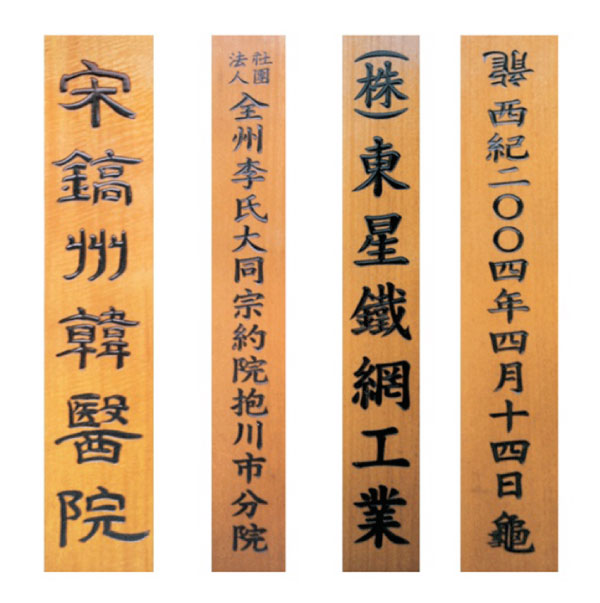 宋鎬州韓醫院
社團
法人
全州李氏大同宗約院抱川市分院
(株)東星鐵網工業
龍西紀二〇〇四年四月十四日龜